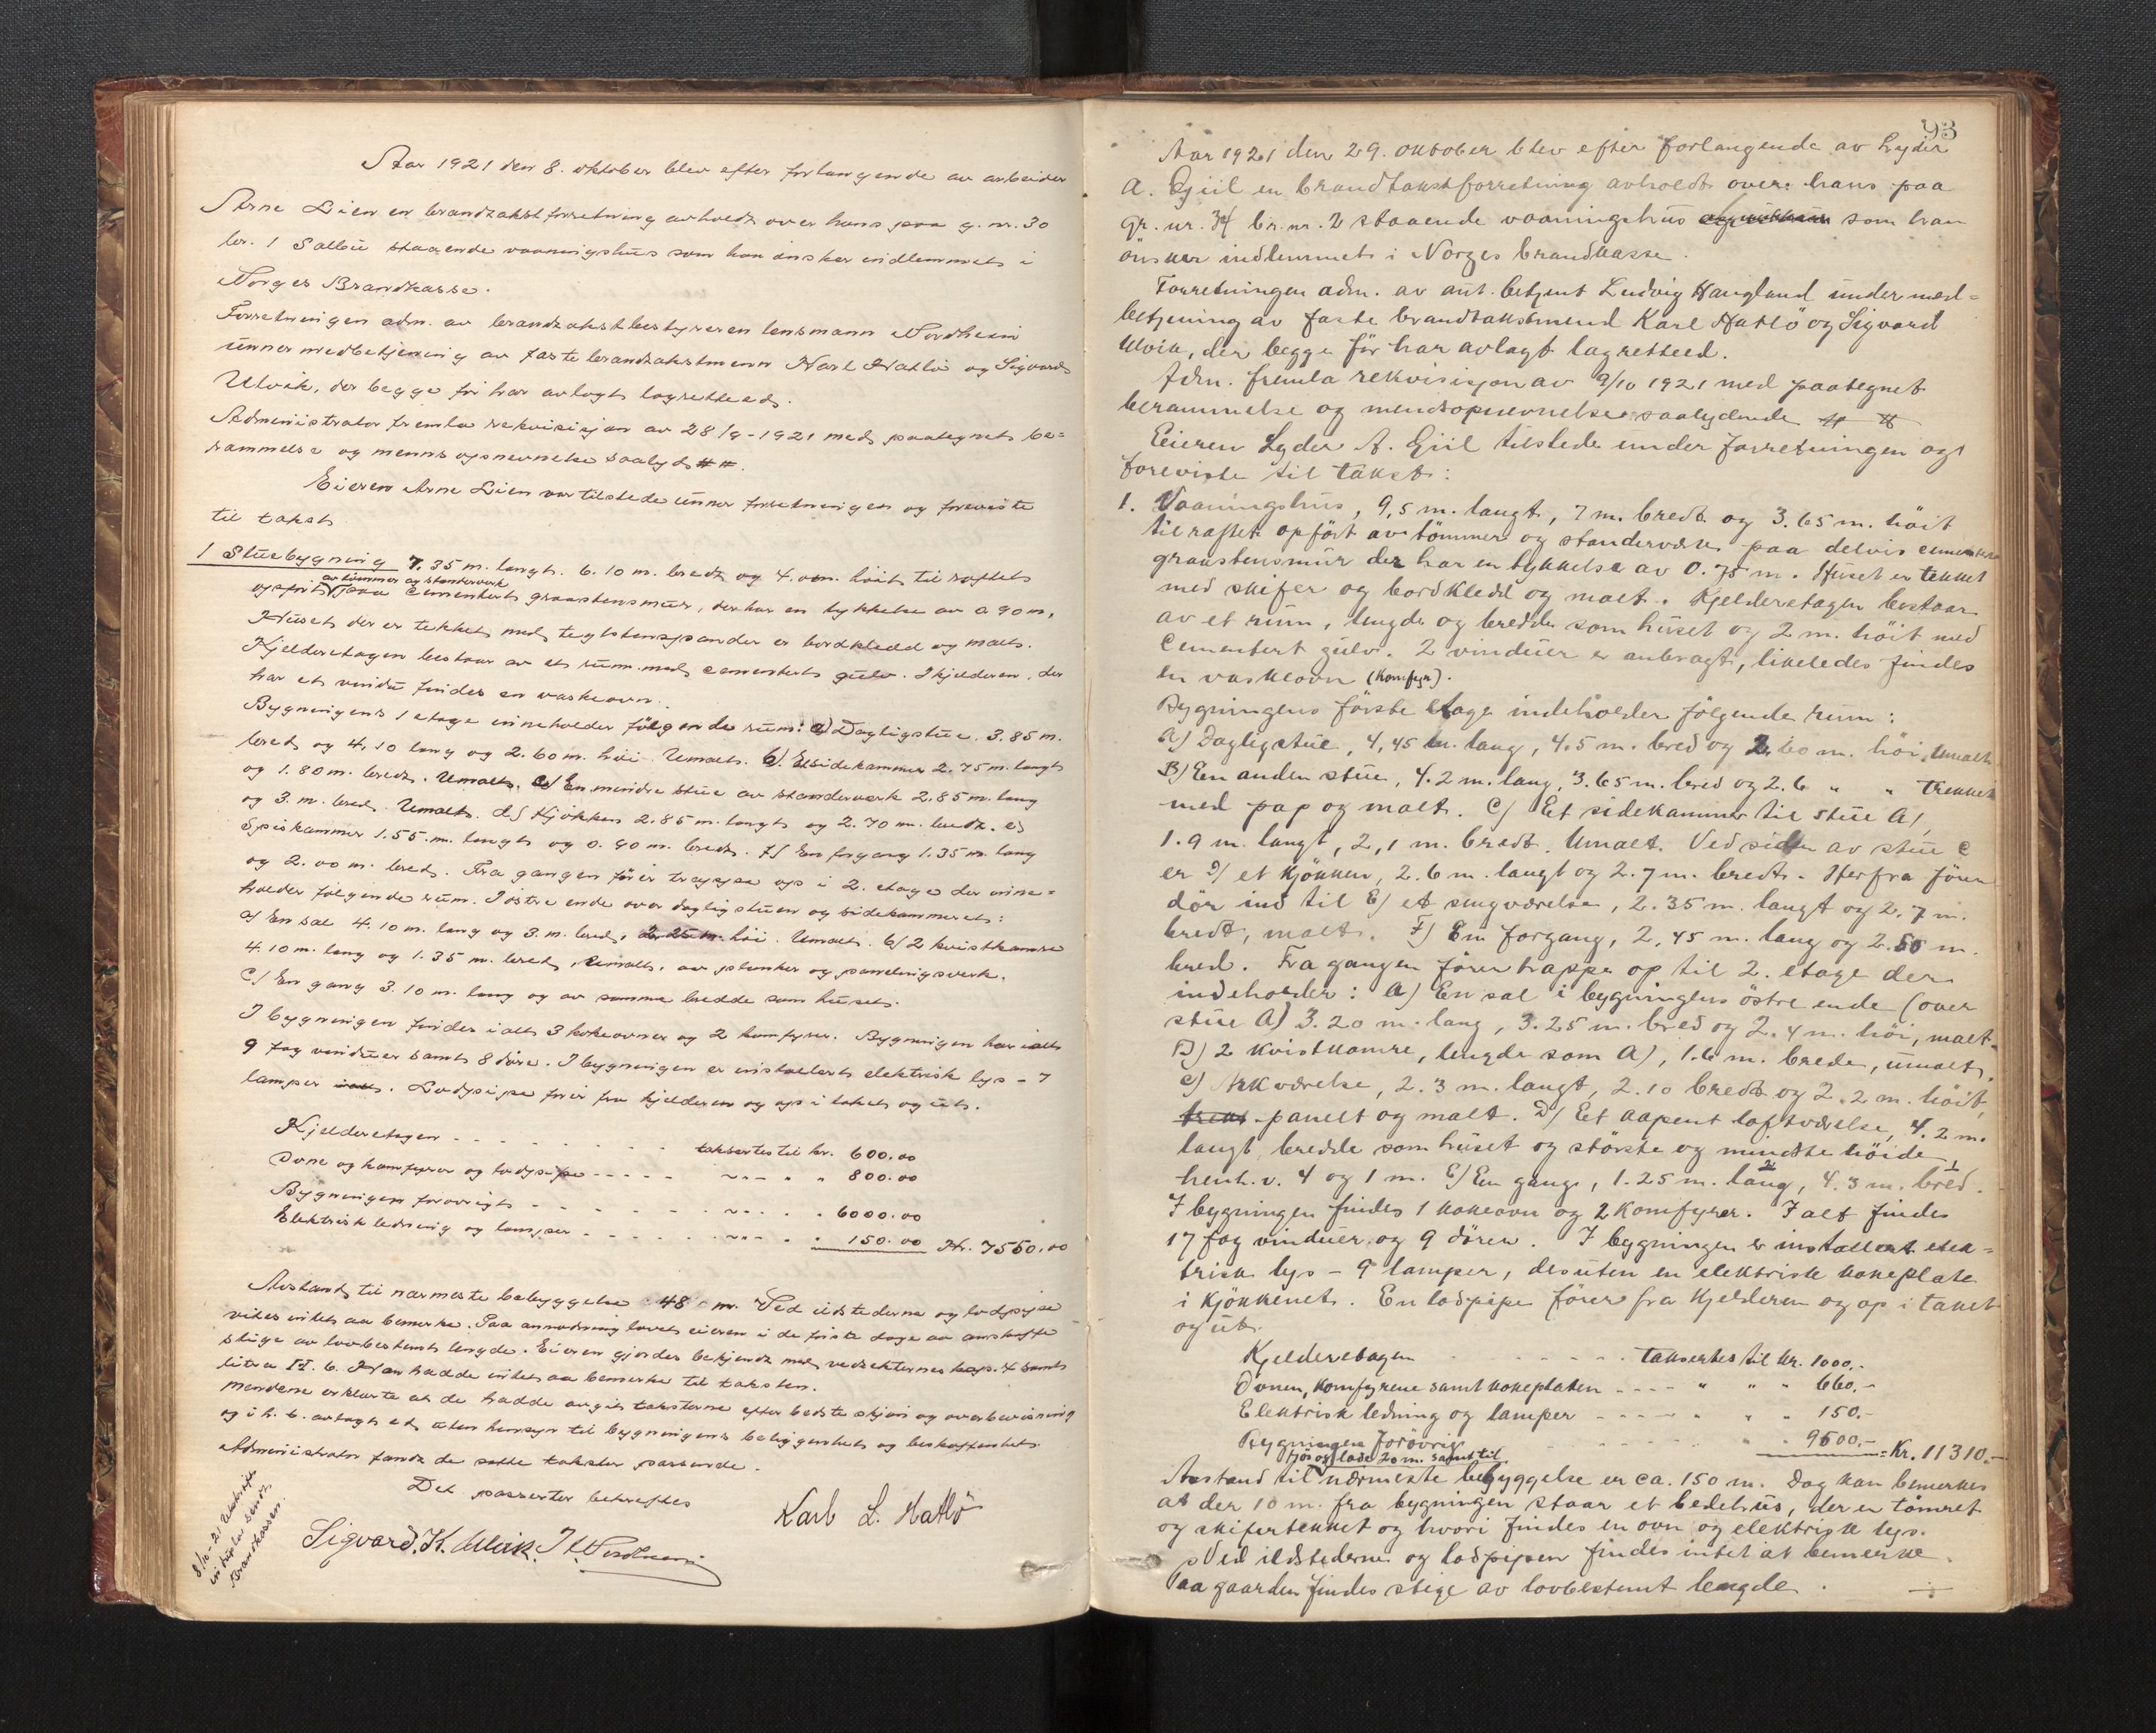 Aar 1921 den 8. oktober blev efter forlangende av arbeider
Arne Lien en brandtakstforretning avholdt over hans paa g. nr. 30
br. 1 Salbu staaende vaaningshus som han önsker indlemmet i
Norges Brandkasse.
Forretningen adm. av brandtakstbestyreren lensmann Nordheim
unner medbetjening av faste brandtakstmenn Karl Hatlö og Sigvard
Ulvik, der begge för har avlagt lagretteed.
Administrator fremla rekvisisjon av 28/9-1921 med paategnet be=
rammelse og menns opnevnelse saalyd. # #.
Eieren Arne Lien var tilstede unner forretningen og foreviste
til takst
1 Stuebygning 7.35 m. langt. 6.10 m. bredt og 4.00 m. höit til raftet
av tömmer og standerverk
opfört paa cementert graastensmur, der har en tykkelse av 0.90 m.
Huset der er tekket med teglstenspanner er bordkledd og malt.
Kjelderetagen bestaar av et rum med cementert gulv. I kjelderen, der
har et vindu findes en vaskeovn.
Bygningens 1 etage inneholder fölgende rum: a) Dagligstue. 3.85 m.
bred og 4.10 lang og 2.60 m. höi. Umalt. b). Et sidekammer 2.75 m. langt
og 1.80 m. bredt. Umalt. c) En mindre stue av standerverk 2.85 m. lang
og 3. m. bred. Umalt. d) Kjökken 2.85 m. langt og 2.70 m. bredt. e)
Spiskammer 1.55. m. langt og 0.90 m. bredt. f) En forgang 1.35 m. lang
og 2.00 m. bred. Fra gangen förer trappe op i 2. etage der inne=
holder fölgende rum. I östre ende over dagligstuen og sidekammeret:
a) En sal 4.10 m. lang og 3. m. bred, 2.25 m. höi. Umalt. b) 2 kvistkamre
4.10 m. lang og 1.35 m. bred, Umalt, av planker og panelingsverk.
c) En gang 3.10 m. lang og av samme bredde som huset.
I bygningen findes i alt 3 kokeovner og 2 komfyrer. Bygningen har i alt
9 fag vinduer samt 8 döre. I bygningen er installert elektrisk lys - 7
lamper. Lodpipe förer fra kjelderen og op i taket og ut.
Kjelderetagen - - - - taksertes til kr. 600.00
Ovne og komfyrer og lodpipe - - - - " " 800.00
Bygningen forövrigt - - - - " " 6000.00
Elektrisk ledning og lamper - - - - " " 150.00 Kr. 7550.00
Avstand til nærmeste bebyggelse 48 m. Ved ildstederne og lodpipe
vites intet aa bemerke. Paa anmodning lovet eieren i de förste dage av anskaffe
stige av lovbestemt lengde. Eieren gjordes bekjendt med vedtekternes kap. 4 samt
litra II. b. Han hadde intet aa bemerke til taksten.
Mendene erklærte at de hadde avgit taksterne efter bedste skjön og overbevisning
og i h. t. avlagt ed, uten hensyn til bygningens beliggenhet og beskaffenhet
Administrator fandt de satte takster passende.
Det passerter bekreftes
Karl L. Hatlö
Sigvard. K. Ulvik. Nordheim
8/10-21 Utskrift
in duplo sendt
Brandkassen.
93
Aar 1921 den 29. oktober blev efter forlangende av Lyder
A. Gjiil en brandtakstforretning avholdt over hans paa
gr. nr. 34 br. nr. 2 staaende vaaningshus som han
önsker indlemmet i Norges brandkasse.
Forretningen adm. av aut. betjent Ludvig Haugland under med=
betjening av faste brandtakstmend Karl Hatlö og Sigvard
Ulvik, der begge för har avlagt lagretteed.
Adm. fremla rekvisisjon av 9/10 1921 med paategnet
berammelse og mendsopnevnelse saalydende # #
Eieren Lyder A. Gjiil tilstede under forretningen og
foreviste til takst:
1. Vaaningshus, 9,5 m. langt, 7 m. bredt og 3.65 m. höit
til raftet opfört av tömmer og standerverk paa delvis cementert
graastensmur der har en tykkelse av 0.75 m. Huset er tekket
med skifer og bordkledd og malt. Kjelderetagen bestaar
av et rum, lengde og bredde som huset og 2 m. höit med
Cementert gulv. 2 vinduer er anbragt, likeledes findes
en vaskeovn (komfyr).
Bygningens förste etage indeholder fölgende rum:
A) Dagligstue, 4,45 m. lang, 4.5 m. bred og 2.60 m. höi, Umalt
B) En anden stue, 4.2 m. lang, 3.65 m. bred og 2.6 " " trekket
med pap og malt. C) Et sidekammer til stue A),
1.9 m. langt, 2,1 m. bredt. Umalt. Ved siden av stue C
er D) et kjökken, 2.6 m. langt og 2.7 m. bredt. Herfra förer
dör ind til E) et smugværelse, 2.35 m. langt og 2.7 m.
bredt, malt. F) En forgang, 2,45 m. lang og 2.50 m.
bred. Fra gangen förer trappe op til 2. etage der
indeholder: A) En sal i bygningens östre ende (over
stue A) 3.20 m. lang, 3.25 m. bred og 2.4 m. höi, malt.
B) 2 kvistkamre, lengde som A), 1.6 m. brede, umalt.
C) Arkværelse, 2.3 m. langt, 2.10 bredt og 2.2 m. höit,
panelt og malt. D) Eet aapent loftværelse, 4.2 m.
langt bredde som huset og störste og mindste höide,
henh. v. 4 og 1 m. E) En gang, 1.25 m. lang, 4.3 m. bred.
I bygningen findes 1 kokeovn og 2 komfyrer. I alt findes
17 fag vinduer og 9 dörer. I bygningen er installert elek=
trisk lys - 9 lamper, desuten en elektrisk kokeplate
i kjökkenet. En lodpipe förer fra kjelderen og op i taket
og ut.
Kjelderetagen - - - - taksertes til kr. 1000.-
Ovnen, komfyrene samt kokeplaten - - - - " " " 660.-
Elektrisk ledning og lamper - - - - " " " 150.-
Bygningen forövrig - - - - " 9500.- = Kr. 11310.-
fjös og lade 20 m. samt til
Avstand til nærmeste bebyggelse er ca. 150 m. Dog kan bemerkes
at der 10 m. fra bygningen staar et bedehus, der er tömret
og skifertekket og hvori findes en ovn og elektrisk lys.
Ved ildstederne og lodpipen findes intet at bemerke.
Paa gaarden findes stige av lovbestemt lengde.